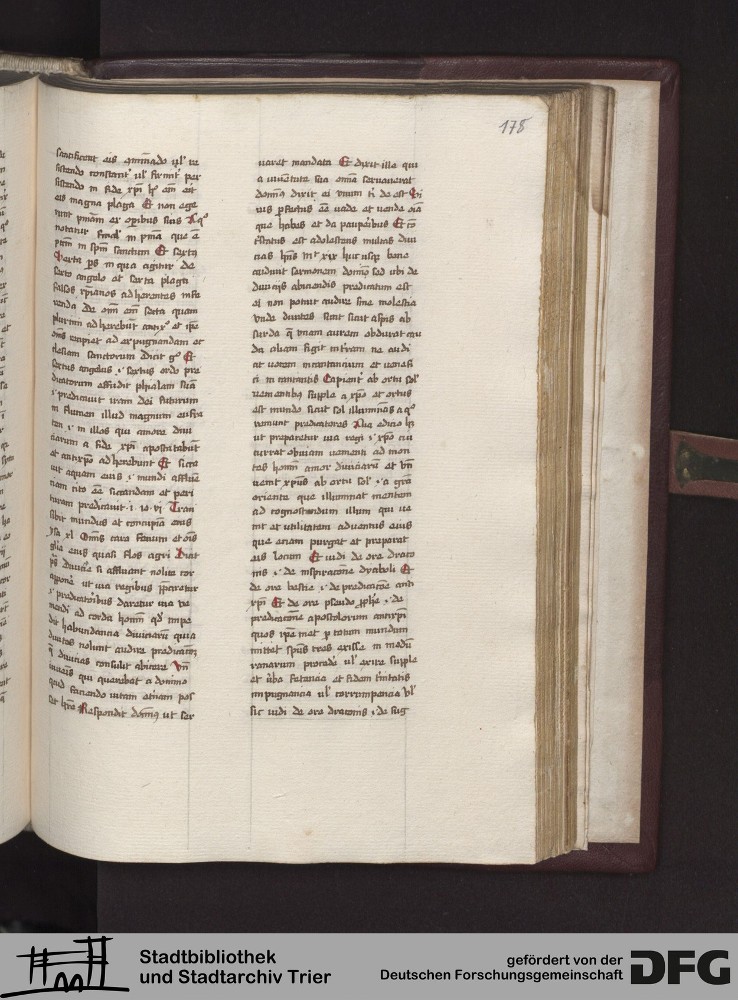 178
sanctificent eis
sistendo constant' ul' firmit' per
sistendo in fide xpi
eis magna plaga Et non ege
runt pniam ex opibus suis
notatur
ptim in spm sanctum Et sexta
sexto angelo et sexta plaga
falsos xpianos adherentes
plurimi adherebunt et ipe
oms recipiet ad expugnandam et
clesiam sanctorum dicit g° Et
sextus angelus .i. sextus ordo pre
dicatorum effudit phialam suã
.i. predicavit iram dei futuram
in flumen illud magnum eufra
ten .i. in illos qui amore divi
ciarum a fide xpi apostatabũt
et antixpo adherebunt Et sicca
vit aquam eius .i. mundi affluẽ
ciam cito eẽ siccandam et peri
turam predicavit .i. io. vi Tran
sibit mundus et concupia eius
ysa xl Omis caro fenum et ois
glia eius quasi flos agri Dicit
ps divicie si affluant nolite cor
apponẽ ut via regibus ppararetur
.i. predicatoribus daretur via ve
niendi ad corda homĩ qd impe
dit habundancia diviciarũ quia
divites nolunt audire predicatorẽ
q divicias consulit abicere Vñ
iuvenis qui querebat a domino
quid faciendo vitam eternam pos
set hre Respondit domin9 ut ser
varet mandata Et dixit ille qui
a iuventute sua omnia servaverat
domin9 dixit ei unum ti de est Si
vis pfectus eẽ vade et vende oĩa
que habes et da pauperibus Et cõ
tristatus est adolescens multas divi
cias hñs mt xix huc usqz bene
audivit sermonem domini sed ubi de
diviciis abiciendis predicatum est
et non potuit audire sine molestia
unde divites sunt sicut aspis ab
surda q unam aurem obdurat cau
da aliam figit in terram ne audi
at vocem incantancium et venefi
ci incantantis Capient' ab ortu sol'
venientibus supple a xpo ut ortus
est mundo sicut sol illuminans a q°
veniunt predicatores Alia edicio hz
ut preparetur via regi .i. xpo cui
currat obviam venienti ad men
tes homĩ amor diviciarũ et vñ
venit xpus ab ortu sol' .i. a gra
oriente que illuminat mentem
ad cognoscendum illum qui ve
nit et utilitatem adventus eius
que eciam purgat et preparat
eis locum Et vidi de ore draco
nis .i. de inspiracõe dyaboli Et
de ore bestie .i. de predicacõe anti
xpi Et de ore pseudo pphe .i. de
predicacione apostolorum antixpi
quos ipe met p totum mundum
mittet spũs tres exisse in modũ
ranarum procedẽ ul' exire supple
et verba fetencia et fidem trinitatis
impugnancia ul' corrumpencia Ul'
sic vidi de ore draconis .i. de sug
Stadtbibliothek
und Stadtarchiv Trier
gefördert von der
Deutschen Forschungsgemeinschaft
DFG